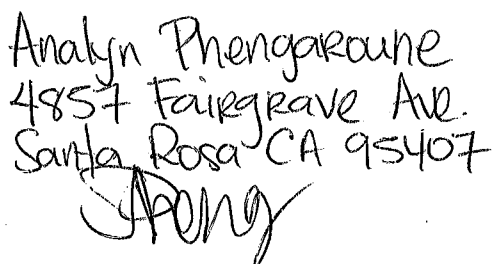 Analyn Phengaroune
4857 Fairgrave Ave.
Santa Rosa CA 95407